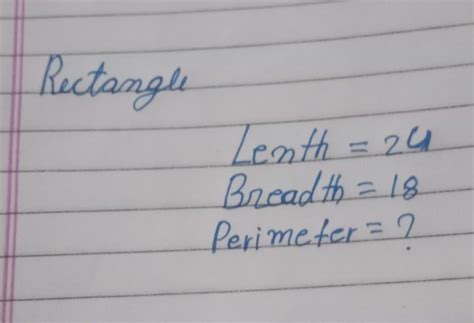 Rectangle
Lenth = 24
Breadth = 18
Perimeter = ?